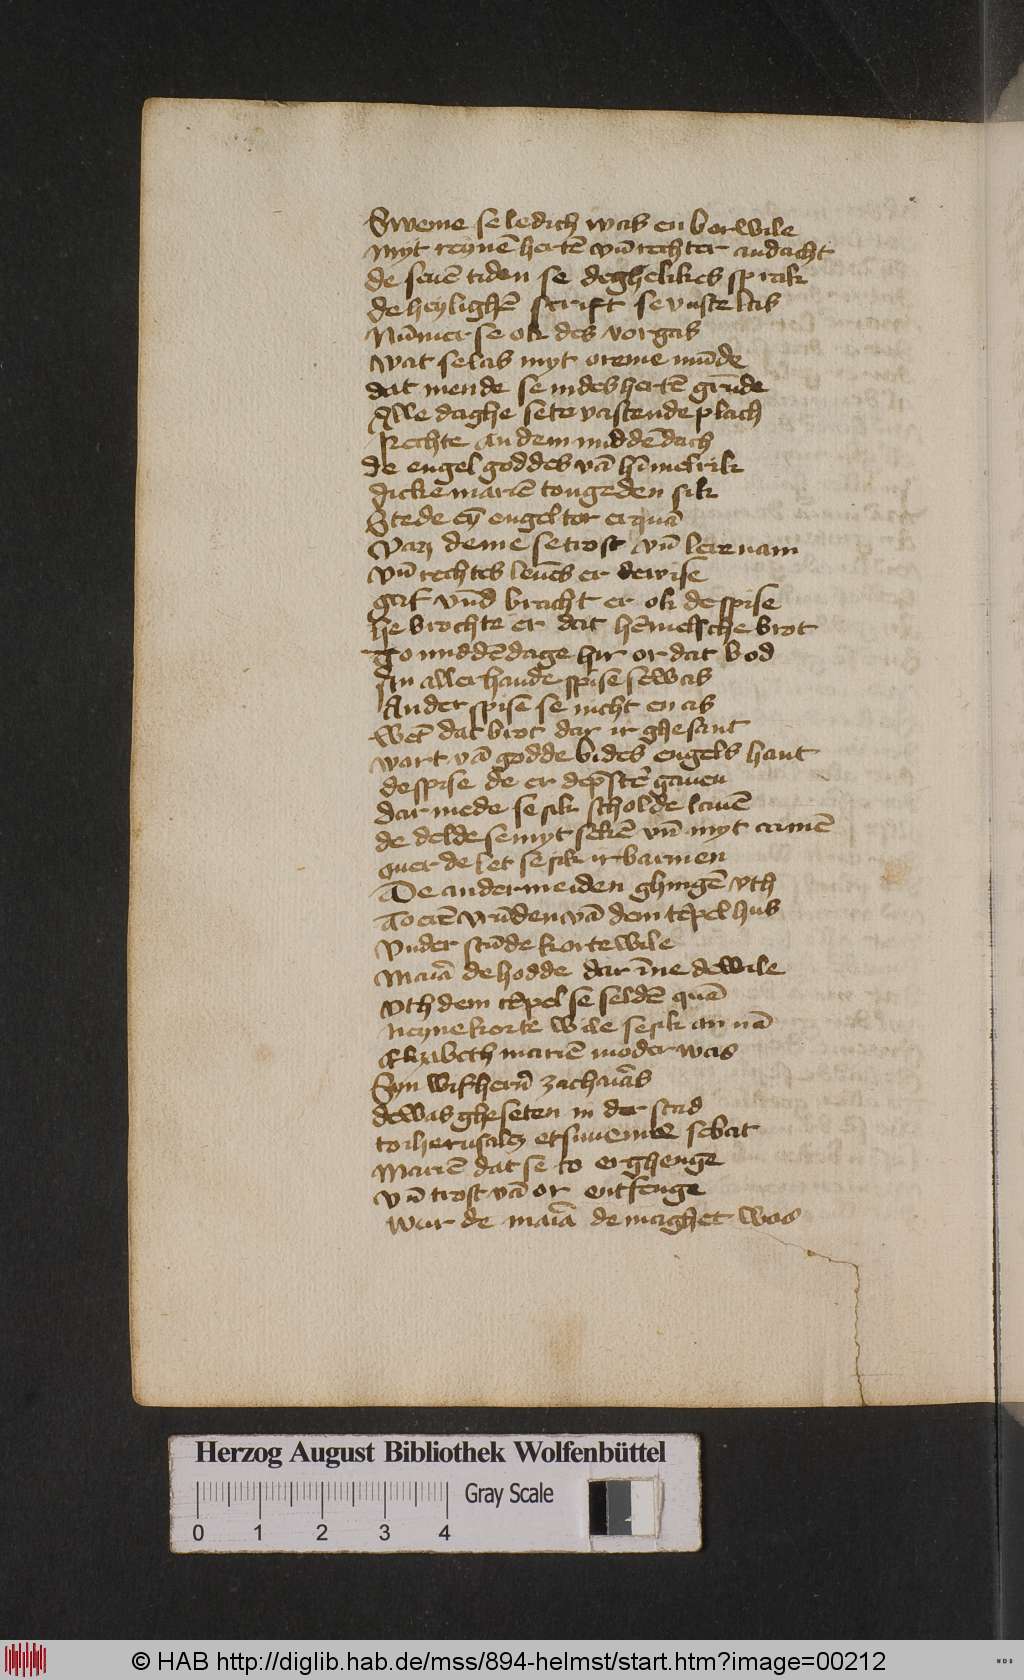 Sweme se ledich was en borwile
myt reynē hertē vn̄ rechter andacht
de seuē tiden se deghelikes sprak
de heylighē scrift se vuste las
Nūmer se ok des vorgas
wat se las myt oreme mūde
dat mende se in des hertē grūde
Alle daghe se te vastende plach
Rechte an dem middē dach
de engel goddes vā hīmelrik
dicke mariē tougeden sik
Stede eȳ engel tor er quā
Van deme se trost vn̄ lere nam
vn̄ rechtes leuēs er de wise
gaf vn̄d bracht er ok de spise
he brochte er dat hēmelsche brot
To middēdage hir or dat bod
An aller hande spise se was
Ander spisē se nicht en as
wēt dat brot dar ir ghesant
wart vā godde bi des engels hant
de spise de er de p̄stē gauen
dar mede se sik scholde lauē
de delde se myt sekē vn̄ myt armē
ouer de let se sik irbarmen
De ander meiden ghingē vth
To erē vrūden vā dem tēpel hus
vnder stūde korte wile
Mariā de hodde dar īne de wile
vth dem tēpel se seldē quā
neyne korte wile se sik an nā
Elyzabeth mariē moder was
Syn wif hern̄ zachariās
de was gheseten in der stad
to iherusalem se bat
Mariē dat se to er ghenge
vn̄ trost vā or entfenge
wur de mariā de maghet was
Herzog August Bibliothek Wolfenbüttel
Gray Scale
0 1 2 3 4
© HAB http://diglib.hab.de/mss/894-helmst/start.htm?image=00212